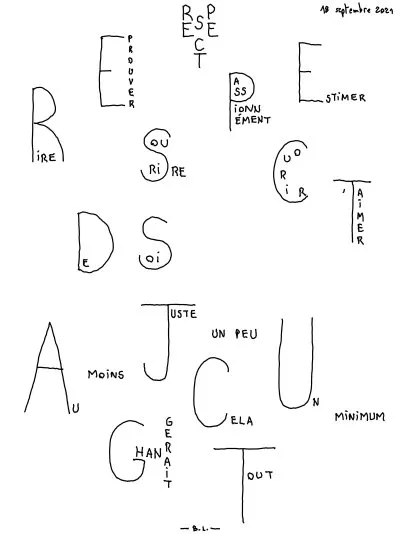 18 septembre 2021
RESPECT
RIRE
EPROUVER
SOURIRE
PASSIONNÉMENT
ESTIMER
COURIR
T'AIMER
DE SOI
AU MOINS
JUSTE UN PEU
UN MINIMUM
CELA
GHANGERAIT
TOUT
— B.L. —